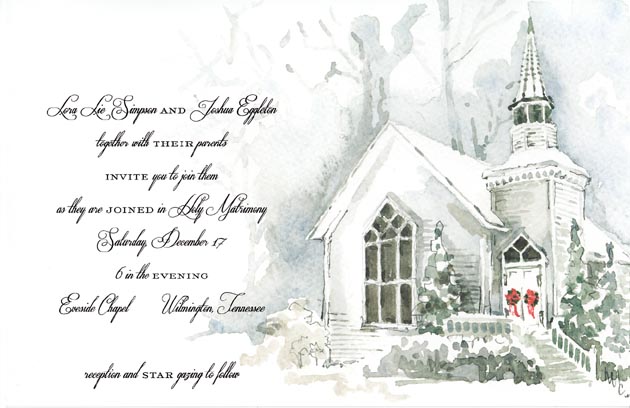 Lora Lie Simpson AND Joshua Eggleton
together with THEIR parents
INVITE you to join them
as they are JOINED in Holy Matrimony
Saturday, December 17
6 in the EVENING
Eveside Chapel Wilmington, Tennessee
reception and STAR gazing to follow